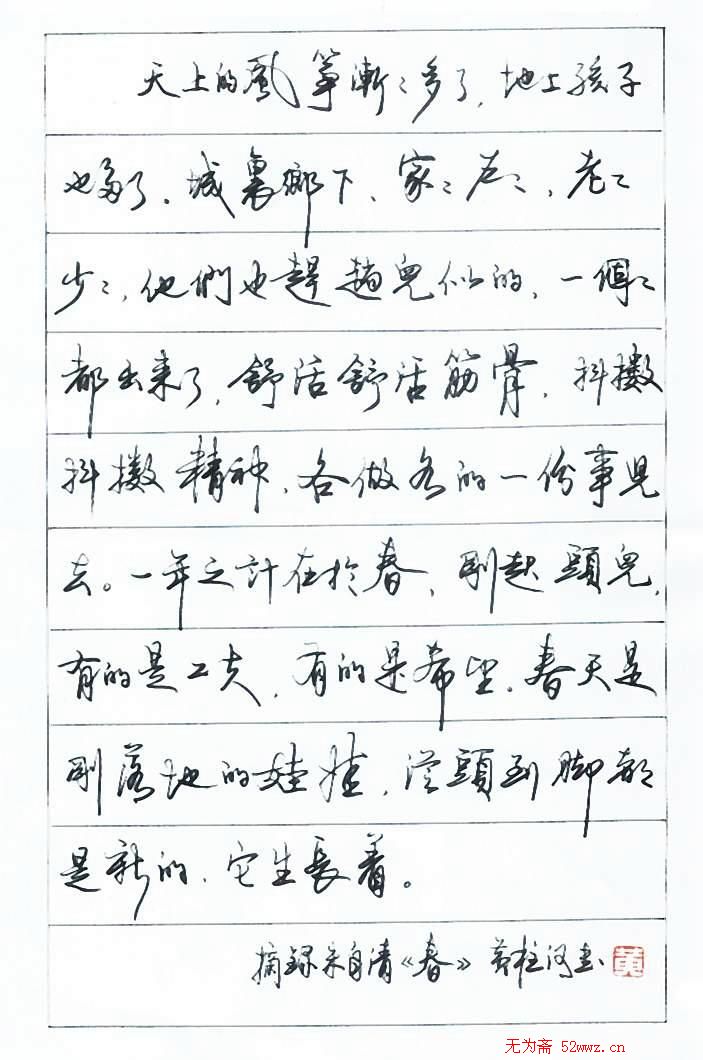 天上的風箏漸〻多了，地上孩子
也多了。城裏鄉下、家〻戶〻，老〻
少〻，他們也趕趟兒似的，一個〻
都出来了，舒活舒活筋骨，抖擻
抖擻精神，各做各的一份事兒
去。一年之計在於春，剛起頭兒，
有的是工夫，有的是希望。春天是
剛落地的娃娃，從頭到脚都
是新的，它生長着。
摘録朱自清《春》 黄柱河書 黄
无为斋 52wwz.cn